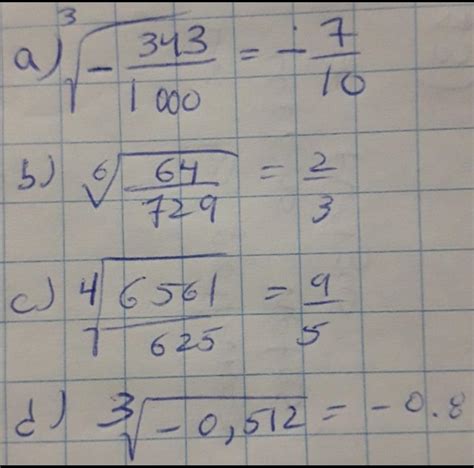 a) ∛(-343/1000) = -7/10
b) ⁶√(64/729) = 2/3
c) ⁴√(6561/625) = 9/5
d) ³√(-0,512) = -0.8